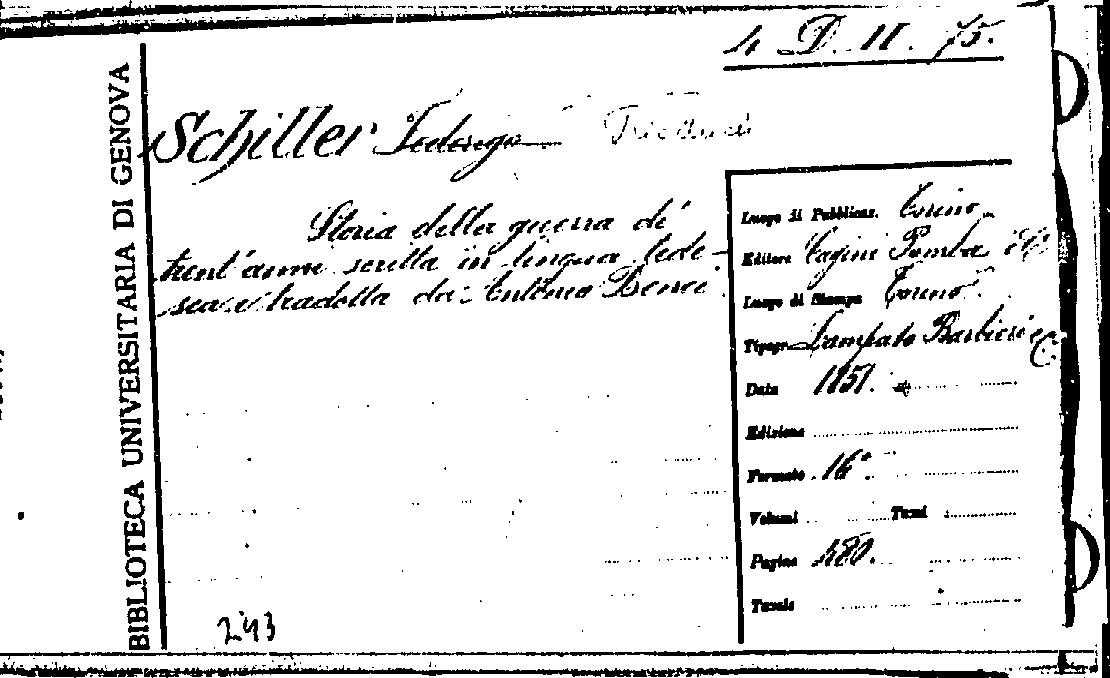 4 D. II. 75.
BIBLIOTECA UNIVERSITARIA DI GENOVA
Schiller Federigo
Storia della guerra di
trent'anni scritta in lingua tede-
sca e tradotta da Antonio Benci
Luogo di Pubblicaz. Torino
Editore Cugini Pomba e C.
Luogo di Stampa Torino
Tipogr. Lampato Barbieri e C.
Data 1851.
Edizione
Formato 16°.
Volumi Tomi
Pagine 480.
Tavole
243